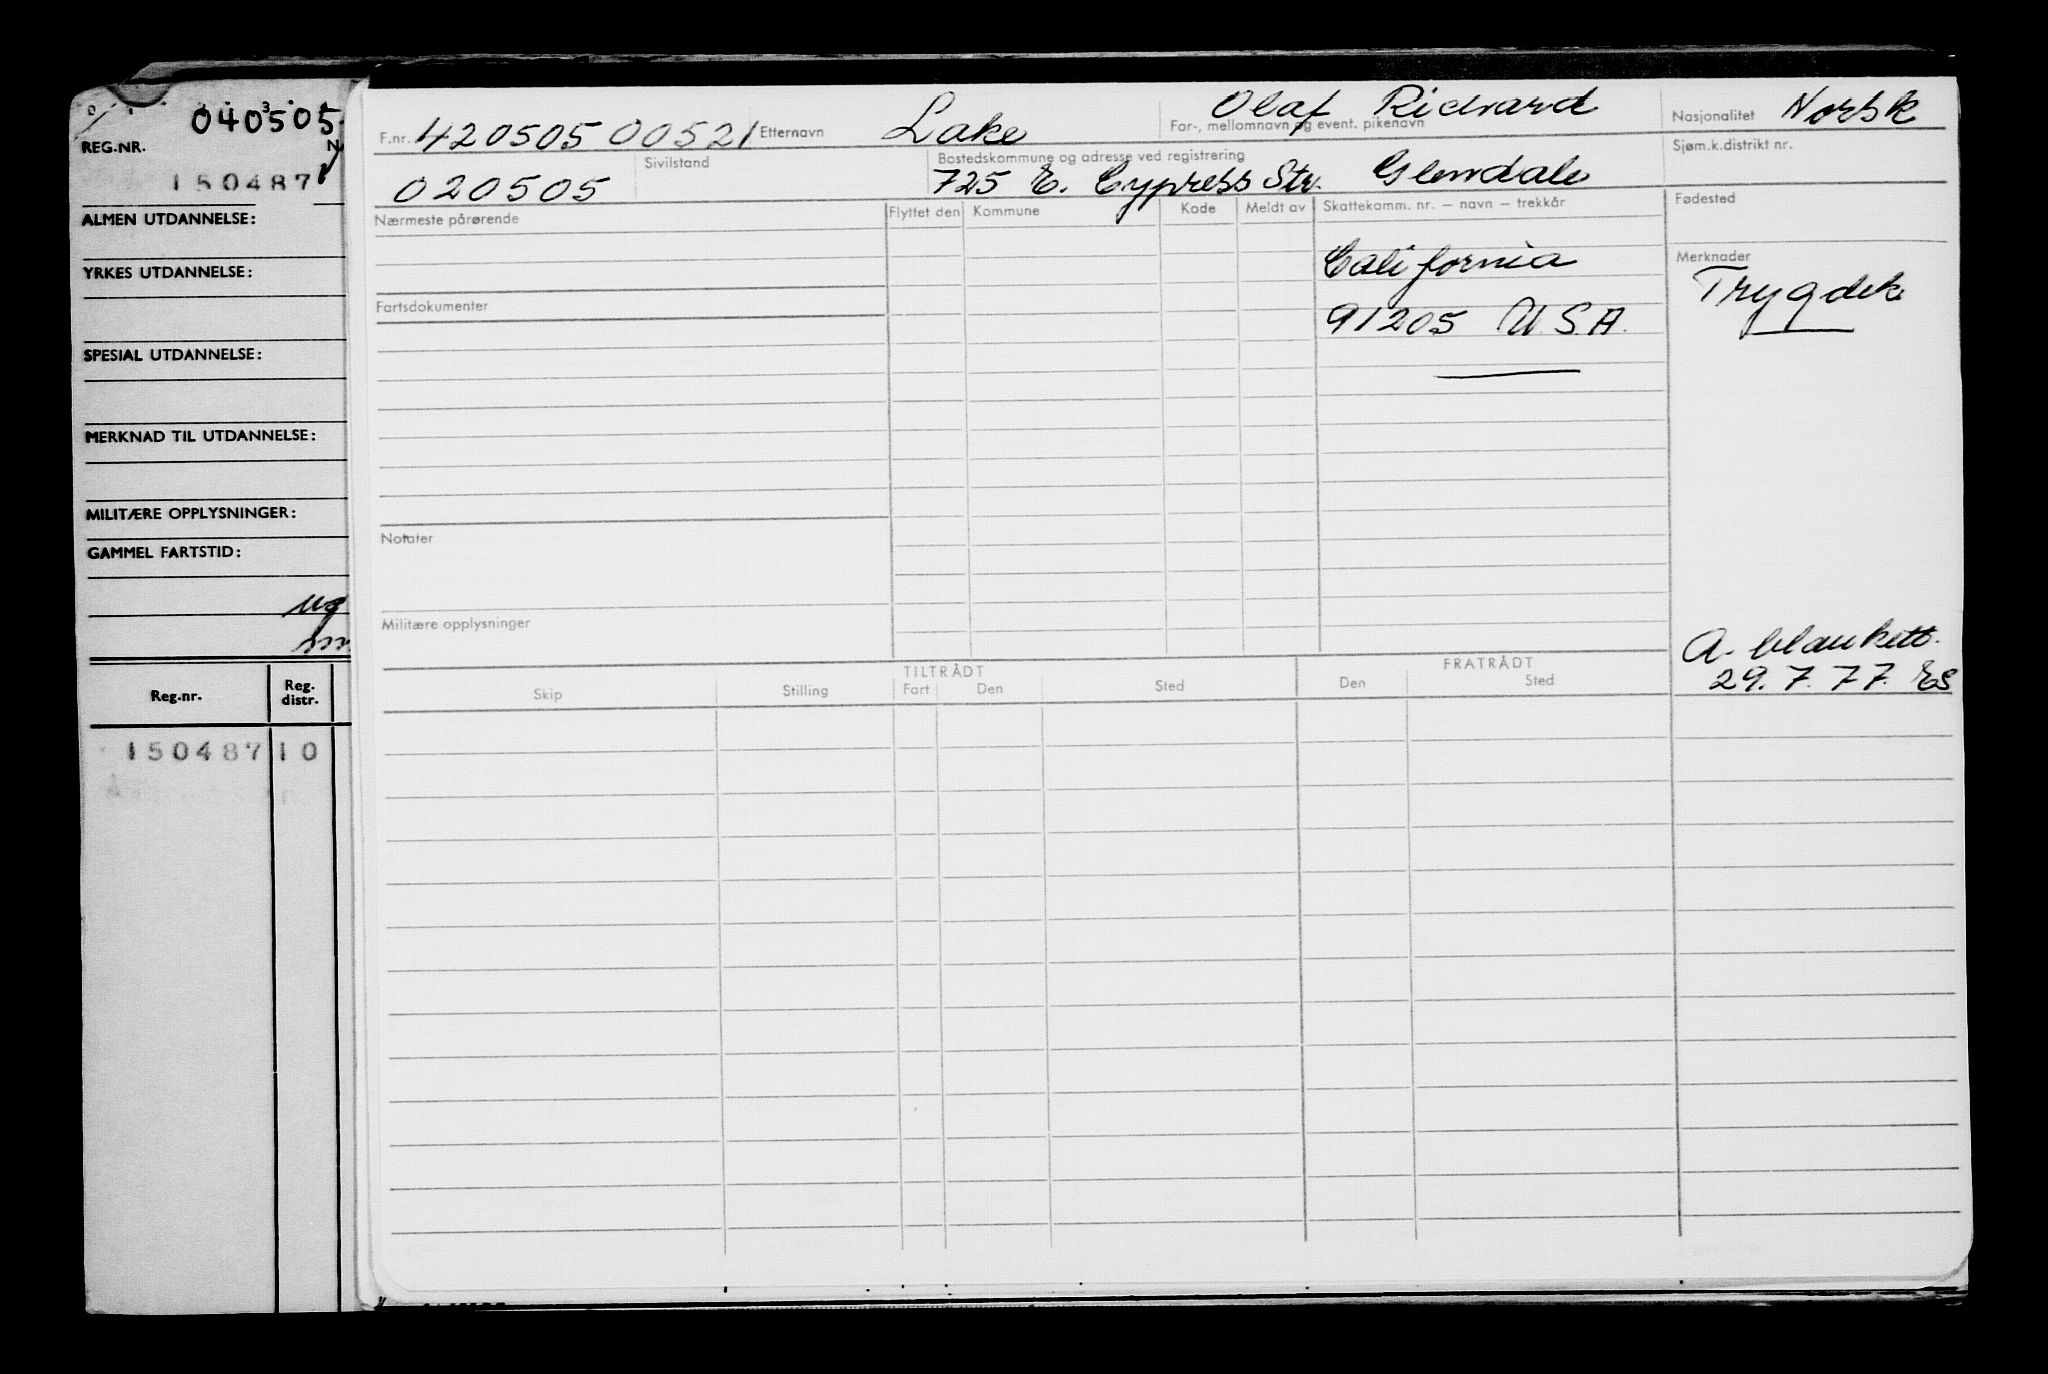 040505
3
REG.NR.
150487
ALMEN UTDANNELSE:
YRKES UTDANNELSE:
SPESIAL UTDANNELSE:
MERKNAD TIL UTDANNELSE:
MILITÆRE OPPLYSNINGER:
GAMMEL FARTSTID:
Reg.nr. Reg. distr.
150487 10
F.nr. 420505 00521 Etternavn Lake Olaf Richard For-, mellomnavn og event. pikenavn Nasjonalitet Norsk
020505 Sivilstand Bostedskommune og adresse ved registrering Sjøm.k.distrikt nr.
725 E. Cypress Str. Glendale
Nærmeste pårørende Flyttet den Kommune Kode Meldt av Skattekomm. nr. – navn – trekkår Fødested
California Merknader
Trygdek
Fartsdokumenter 91205 USA.
Notater
Militære opplysninger A. blankett.
29.7.77. ES
TILTRÅDT FRATRÅDT
Skip Stilling Fart Den Sted Den Sted